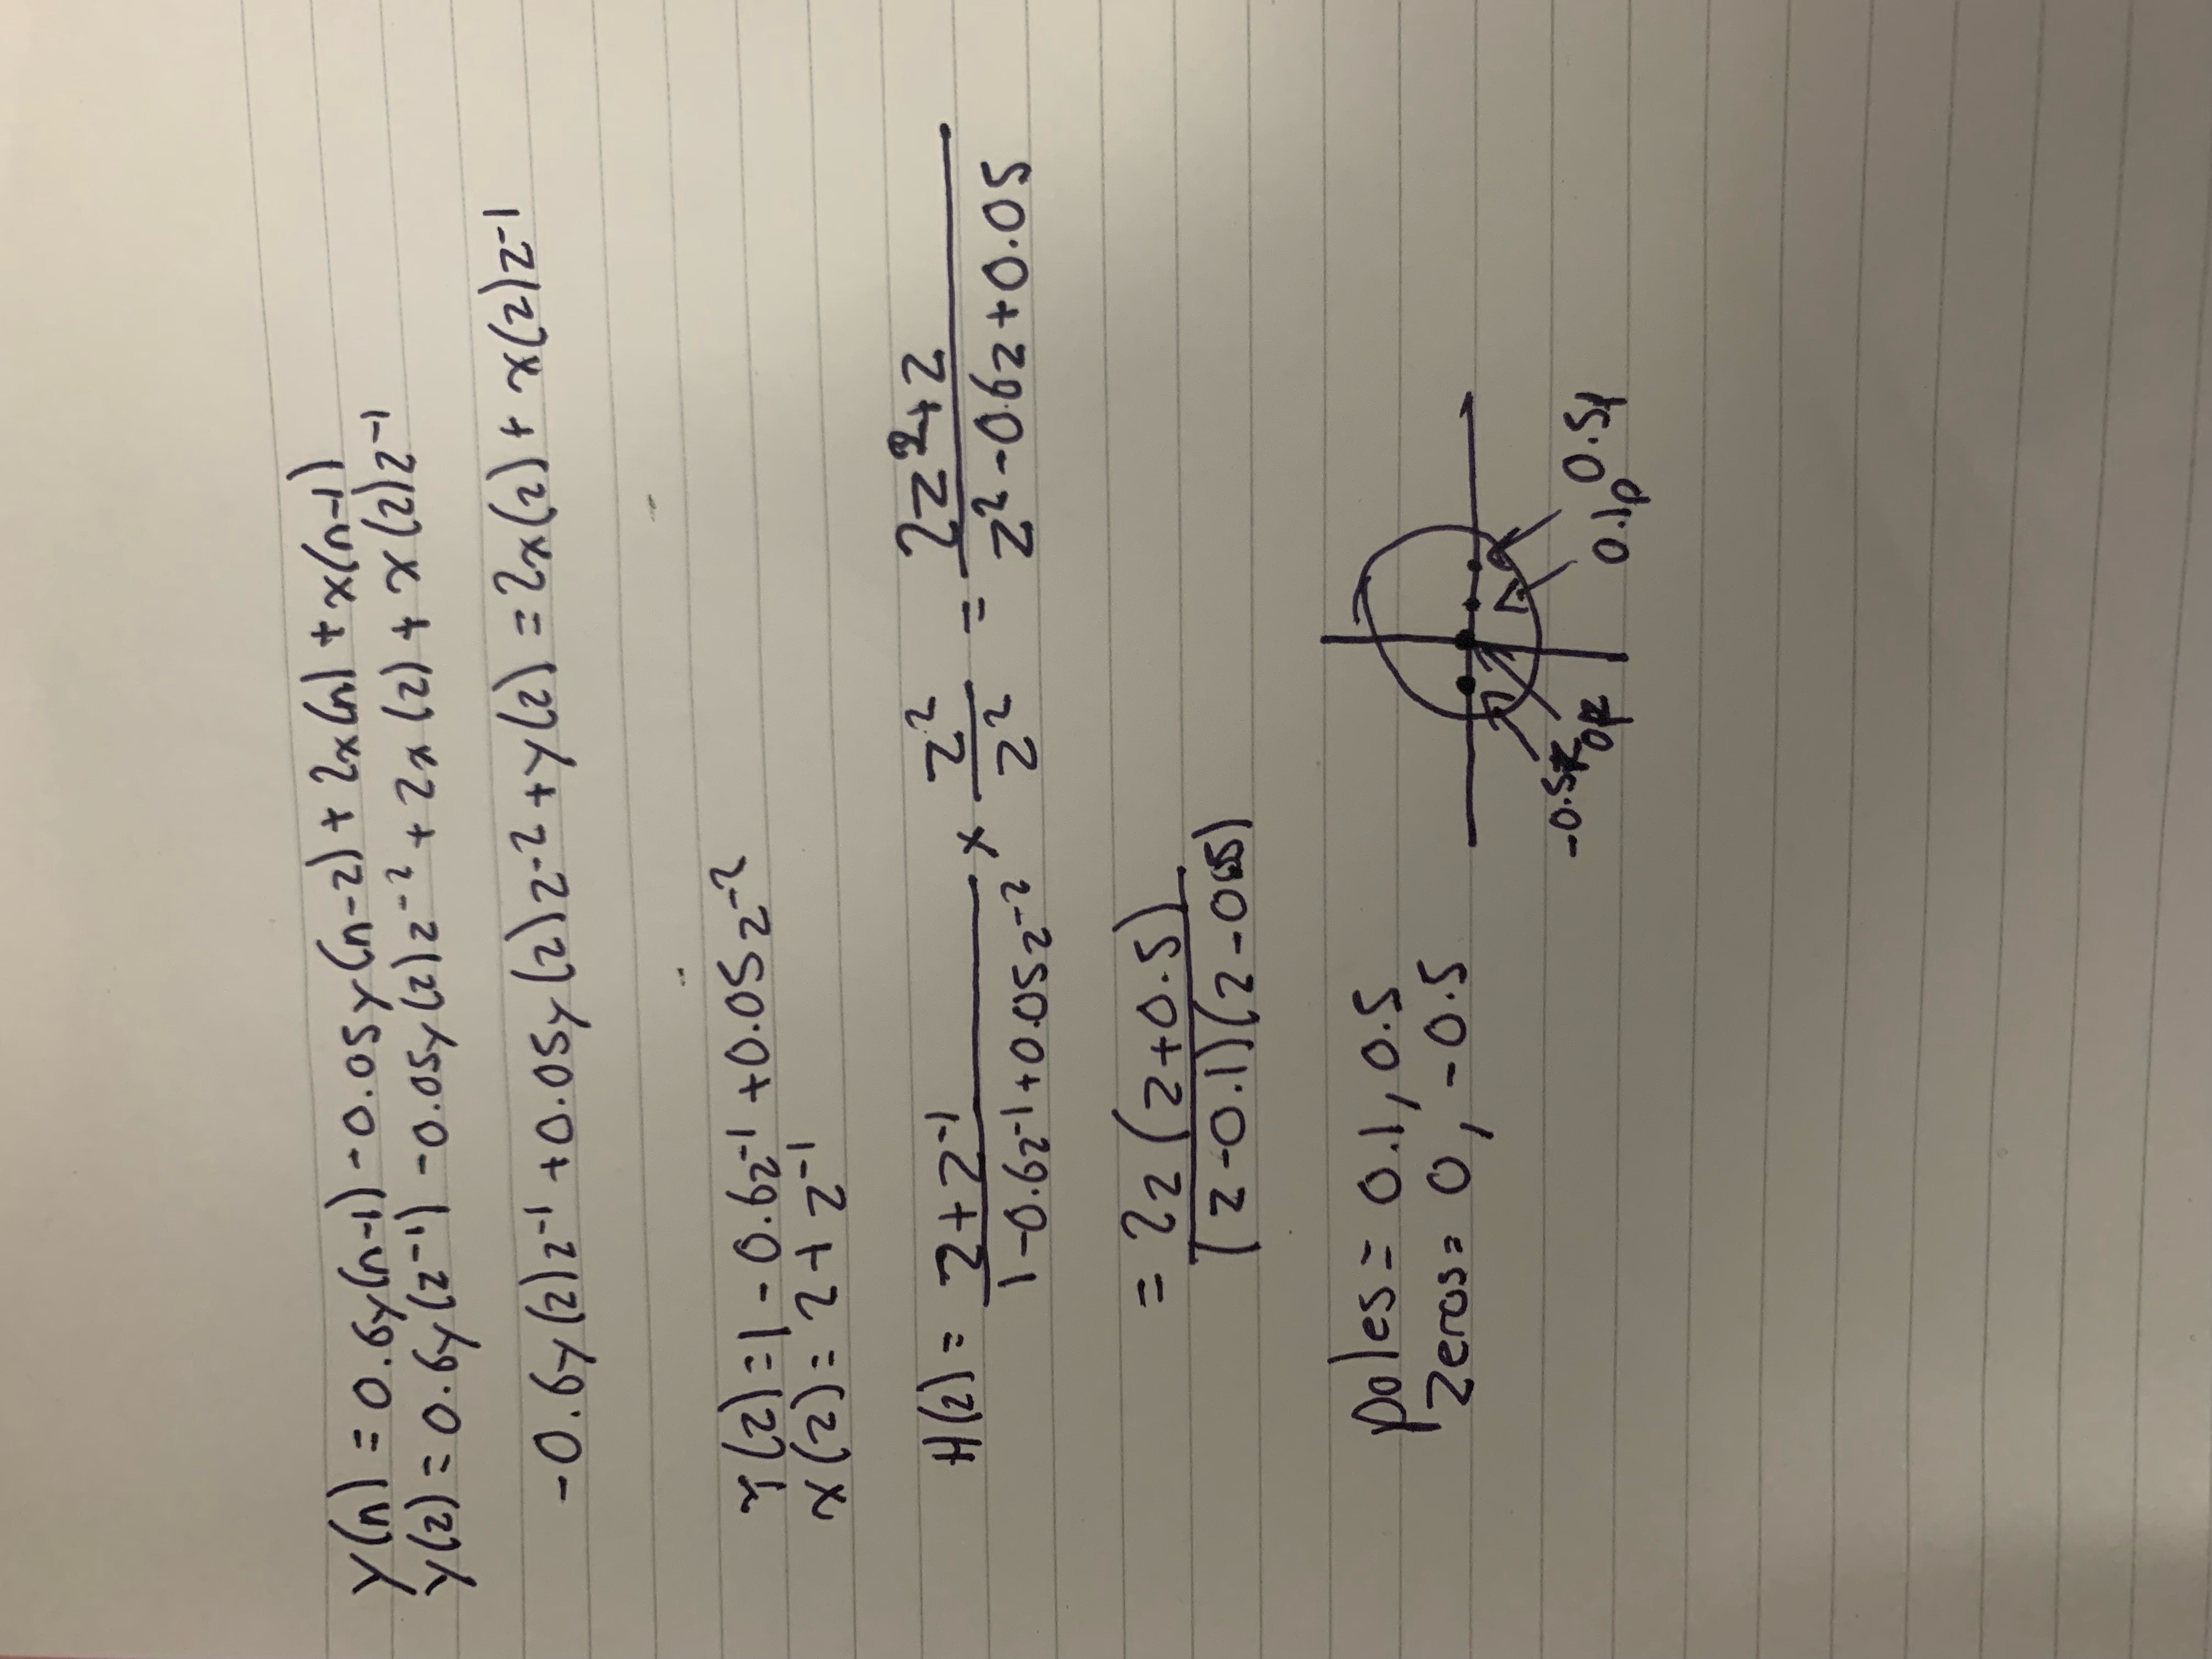 y(n) = 0.6y(n-1) - 0.05y(n-2) + 2x(n) + x(n-1)
y(z) = 0.6y(z-1) - 0.05y(z)z-2 + 2x(z) + x(z)z-1
-0.6y(z)z-1 + 0.05y(z)z-2 + y(z) = 2x(z) + x(z)z-1
y(z) = 1 - 0.6z-1 + 0.05z-2
x(z) = 2 + z-1
H(z) = 2+z-1 / 1-0.6z-1+0.05z-2 x z2 / z2 = 2z2+z / z2-0.6z+0.05
= 2z(z+0.5) / (z-0.1)(z-0.5)
poles = 0.1, 0.5
zeros = 0, -0.5
-0.5z
0z
0.1p
0.5p